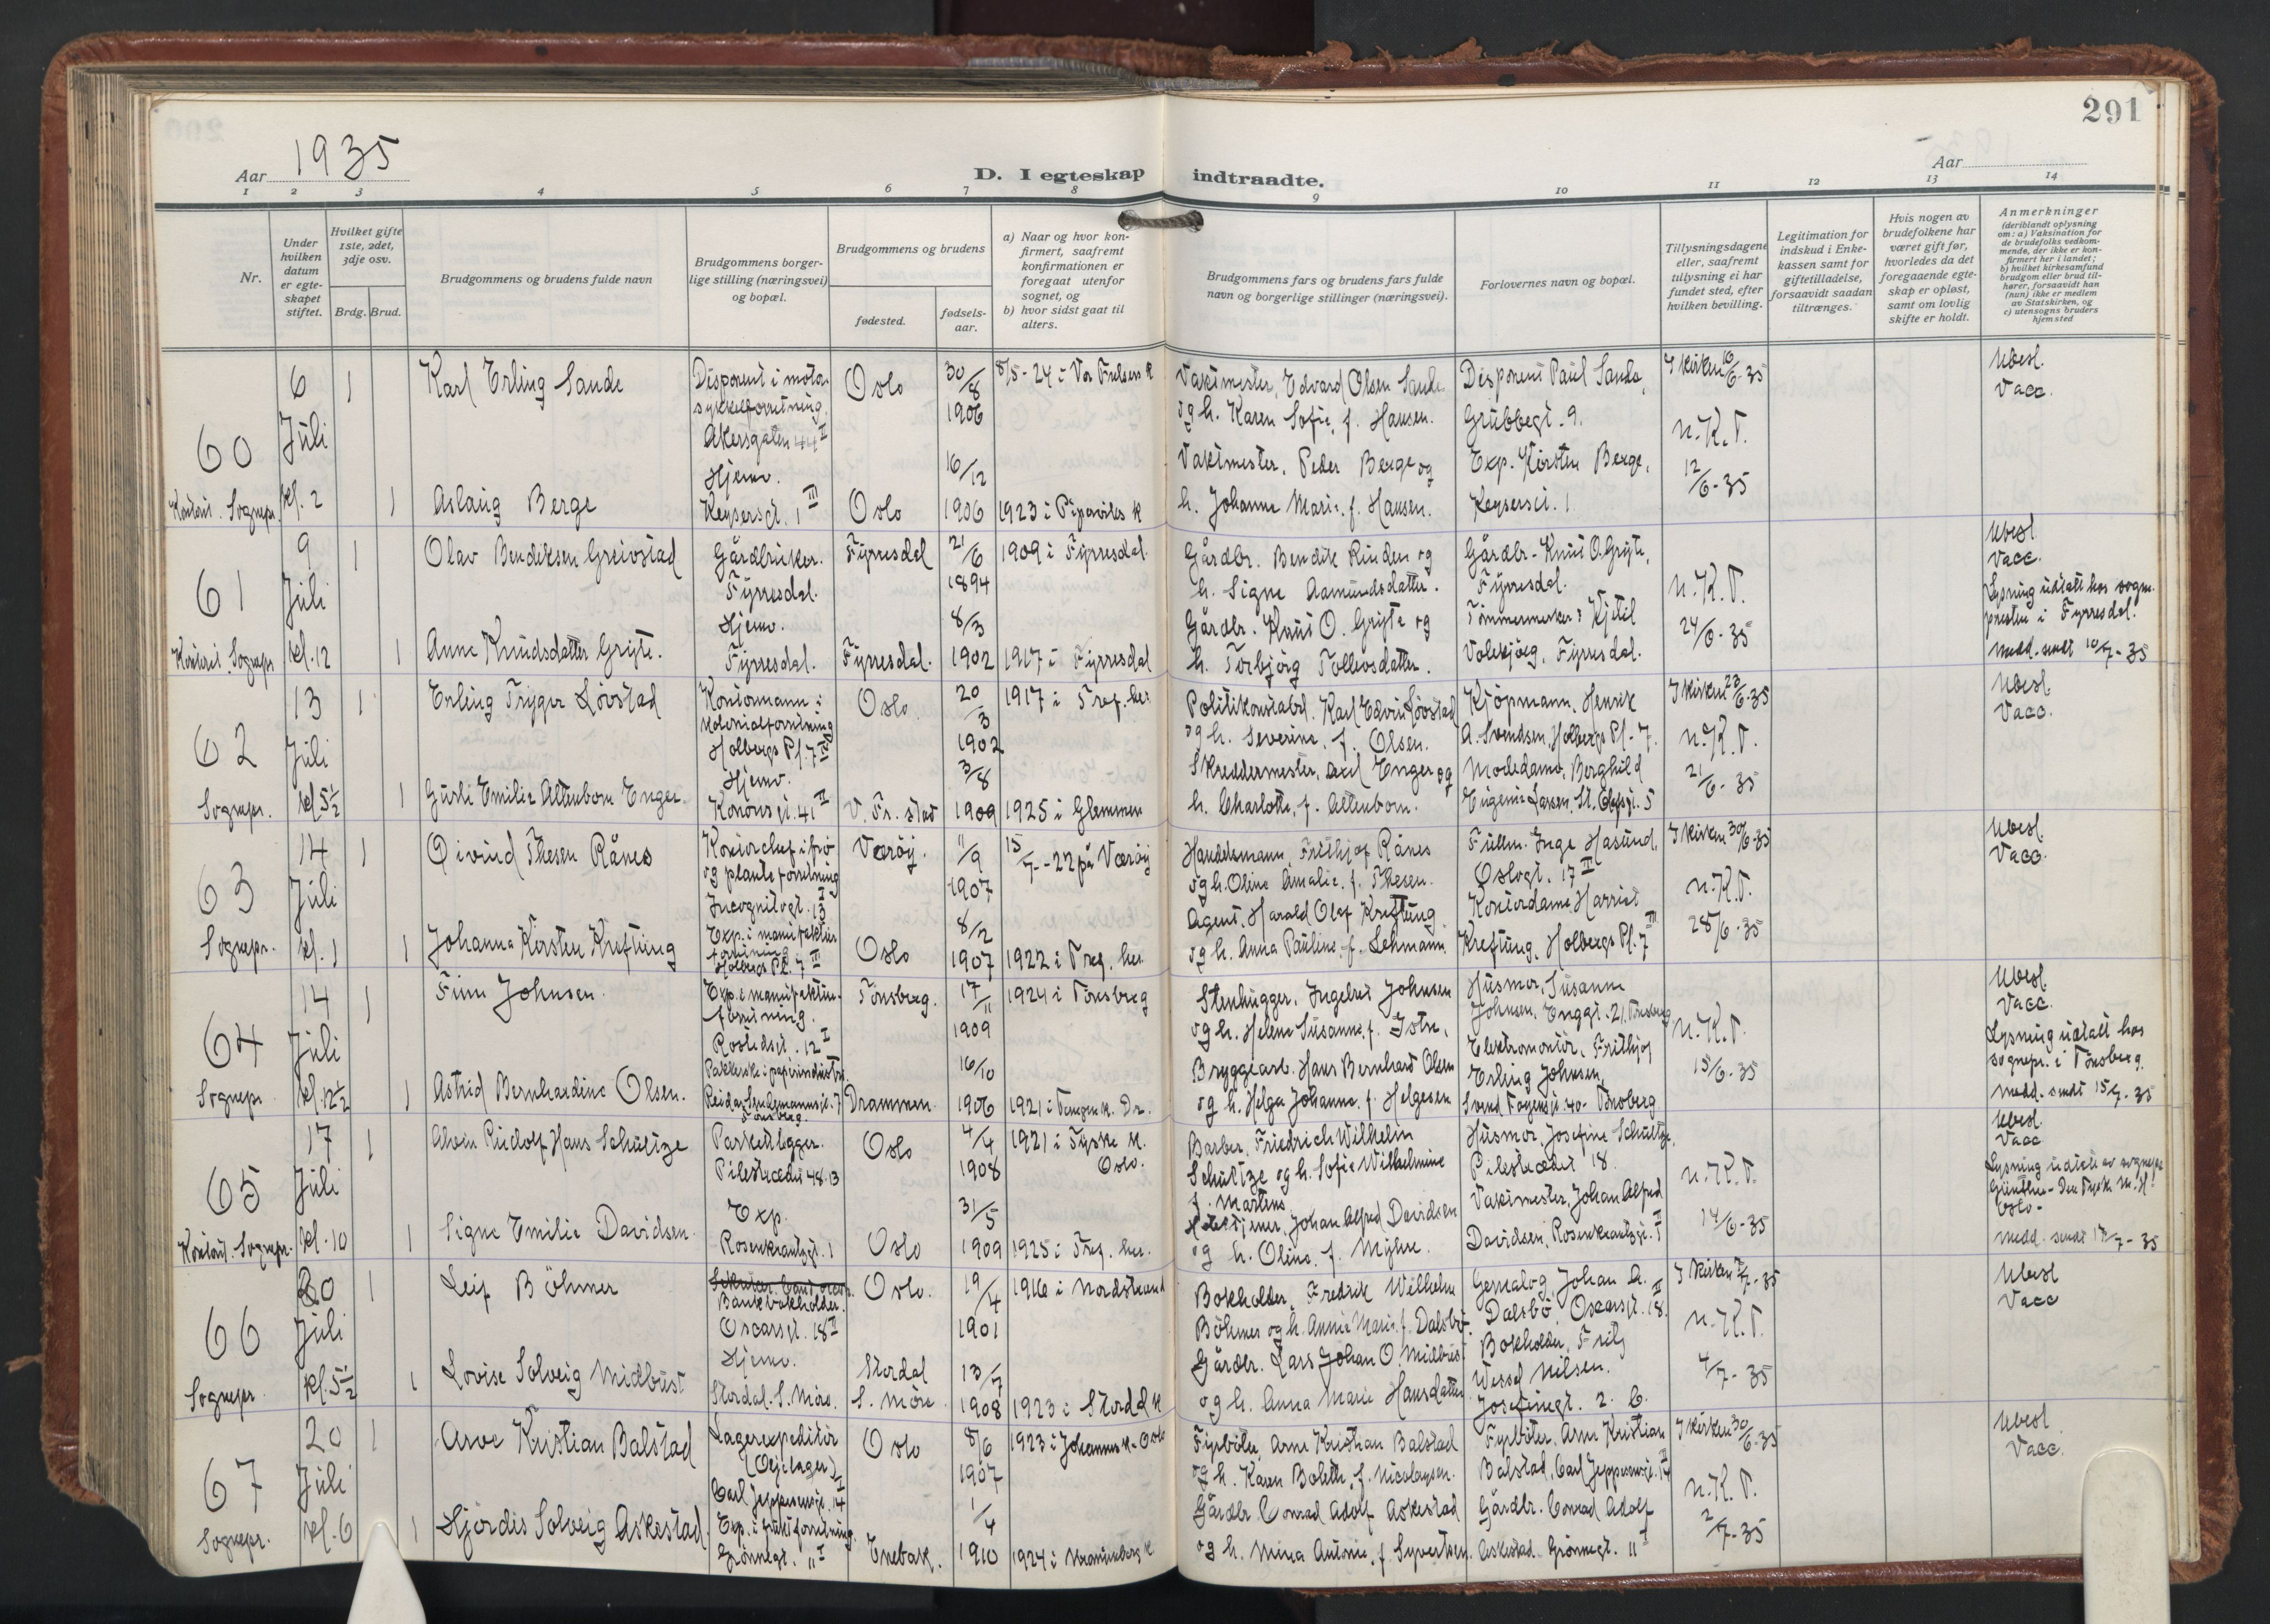 291
Aar 1935
D. I egteskap indtraadte.
Aar
1 2 3 4 5 6 7 8 9 10 11 12 13 14
Nr.
Under hvilken datum er egte-skapet stiftet.
Hvilket gifte 1ste, 2det, 3dje osv.
Brdg. Brud.
Brudgommens og brudens fulde navn
Brudgommens borger-lige stilling (næringsvei) og bopæl.
Brudgommens og brudens
fødested.
fødsels-aar.
a) Naar og hvor kon-firmert, saafremt konfirmationen er foregaat utenfor sognet, og
b) hvor sidst gaat til alters.
Brudgommens fars og brudens fars fulde navn og borgerlige stillinger (næringsvei).
Forlovernes navn og bopæl.
Tillysningsdagene eller, saafremt tillysning ei har fundet sted, efter hvilken bevilling.
Legitimation for indskud i Enke-kassen samt for giftetilladelse, forsaavidt saadan tiltrænges.
Hvis nogen av brudefolkene har været gift før, hvorledes da det foregaaende egte-skap er opløst, samt om lovlig skifte er holdt.
Anmerkninger (deriblandt oplysning om: a) Vaksination for de brudefolks vedkom-mende, der ikke er kon-firmert her i landet; b) hvilket kirkesamfund brudgom eller brud til-hører, forsaavidt han (hun) ikke er medlem av Statskirken, og c) utensogns bruders hjemsted
60
Kontoret. Sognepr.
6 Juli kl. 2
1
Karl Erling Sande
Disponent i motorsykkelforretning. Akersgaten 44 II
Oslo
30/8 1906
8/5-24 i Vor Frelsers k
Vaktmester, Edvard Olsen Sande og h. Karen Sofie, f. Hansen.
Disponent Paul Sande, Grubbegt. 9.
I kirken 16/6-35
n.K.T. 12/6-35
Ubesl. Vacc.
1
Aslaug Berge
Hjemv. Keysersgt. 1 III
Oslo
16/12 1906
1923 i Piperviks k
Vaktmester, Peder Berge og h. Johanne Marie, f. Hansen.
Exp. Kirsten Berge, Keysersgt. 1
61
Kontoret. Sognepr
9 Juli kl. 12
1
Olav Bendiksen Greivstad
Gårdbruker. Fyrresdal.
Fyrresdal
21/6 1894
1909 i Fyrresdal.
Gårdbr. Bendik Rinden og h. Signe Aamundsdatter.
Gårdbr. Knut O. Gryte, Fyrresdal.
n.K.T. 24/6-35
Ubesl. Vacc.
Lysning uttatt hos sogne-presten i Fyrresdal.
medd. sendt 10/7-35
1
Anne Knudsdatter Gryte.
Hjemv. Fyrresdal.
Fyrresdal.
8/3 1902
1917 i Fyrresdal
Gårdbr. Knut O. Gryte og h. Torbjörg Tollevsdatter.
Tömmermerker Kjetil Fyrresdal.
62
Sognepr.
13 Juli kl 5 1/2
1
Erling Trygve Lövstad
Kontormann i kolonialforretning Holbergs Pl. 7 III
Oslo
20/3 1902
1917 i Tref. her
Politikonstabel. Karl Edvin Lövstad og h. Severine, f. Olsen.
Kjöpmann, Henrik A. Svendsen, Holbergs Pl. 7.
I kirken 23/6-35
n.K.T. 21/6-35
Ubesl. Vacc.
1
Gurli Emilie Altenborn Enger.
Hjemv. Konowsgt. 41 II
V. Fr. stad
3/8 1909
1925 i Glemmen
Skreddermester, Axel Enger og h. Charlotte, f. Altenborn.
Modedame, Borghild Eugenie Larsen, St. Olafsgt. 5
63
Sognepr.
14 Juli kl. 1
1
Öivind Thesen Rånes
Kontorchef i frö og planteforretning Incognitogt. 13 I
Væröy.
11/9 1907
15/7-22 på Væröy
Handelsmann, Frithjof Rånes og h. Oline Amalie, f. Thesen.
Fullm. Inge Hasund, Oslogt. 17 II
I kirken 30/6-35
n.K.T. 28/6-35
Ubesl. Vacc.
1
Johanna Kirsten Krefting
Exp. i manufaktur forretning Holbergs Pl. 7 III
Oslo
8/2 1907
1922 i Tref. her.
Agent, Harald Olaf Krefting og h. Anna Pauline, f. Lehmann.
Kontordame Harriet Krefting, Holbergs Pl. 7 III
64
Sognepr
14 Juli kl. 12 1/2
1
Finn Johnsen.
Exp. i manufaktur-forretning. Rostedsgt. 12 I
Tönsberg.
17/11 1909
1924 i Tönsberg
Stenhugger, Ingebret Johnsen og h. Helene Susanne, f.
Husmor, Susanne Johnsen, Enggt. 21, Tönsberg
n.K.T. 15/6-35
Ubesl. Vacc.
Lysning uttatt hos sognepr. i Tönsberg.
medd. sendt 15/7-35
1
Astrid Bernhardine Olsen.
Pakkerske i papirindustri. Tönsberg.
Drammen.
16/10 1906
1921 i Dr.
Bryggearb. Hans Bernhard Olsen og h. Helga Johanne, f. Helgesen
Elektromontör, Frithjof Erling Johnsen, Svend Foynsgt. 40. Tönsberg
65
Kontoret. Sognepr.
17 Juli kl. 10
1
Alwin Rudolf Hans Schultze
Parkettlegger. Pilestrædet 48.
Oslo
4/4 1908
1921 i Tyske M. Oslo.
Barber, Friedrich Wilhelm Schultze og h. Sofie Wilhelmine f. Martens
Husmor, Josefine Schultze, Pilestrædet 18.
n.K.T. 14/6-35
Ubesl. Vacc
Lysning uttatt av sognepr. Günther - Den Tyske M. Oslo.
medd. sendt 17/7-35
1
Signe Emilie Davidsen.
Exp. Rosenkrantzgt. 1
Oslo
31/5 1909
1925 i Tref. her.
Johan Alfred Davidsen og h. Oline, f. Myhre.
Vaktmester, Johan Alfred Davidsen, Rosenkrantzgt. 1
66
Sognepr.
20 Juli kl. 5 1/2
1
Leif Böhmer
Bankbokholder. Oscarsgt. 18 II
Oslo.
19/4 1901
1916 i Nordstrand
Bokholder, Fredrik Wilhelm Böhmer og h. Annie Marie, f. Dalsbö.
Genealog, Johan A. Dalsbö, Oscarsgt. 18 II.
I kirken 7/7-35
n.K.T. 4/7-35
Ubesl Vacc
1
Lovise Solveig Midbust
Hjemv. Stordal. S. Möre.
Stordal S. Möre.
13/7 1908
1923 i Stordal k
Gårdbr. Lars Johan O. Midbust og h. Anna Marie Hansdatter
Bokholder, Fritz Wessel Nilsen. Josefinegt. 2. C.
67
Sognepr.
20 Juli kl. 6
1
Arve Kristian Balstad
Lagerexpeditör (Oljelager) Carl Jeppesensgt. 14
Oslo
8/6 1907
1923 i Johannes k. Oslo
Fyrböter, Arne Kristian Balstad og h. Karen Bolette, f. Nicolaysen.
Fyrböter, Arne Kristian Balstad, Carl Jeppesensgt. 14
I kirken 30/6-35
n.K.T. 2/7-35
Ubesl Vacc.
1
Hjördis Solveig Askestad.
Exp. i fruktforretning. Grönnegt. 11 I
Enebak.
1/4 1910
1924 i Kampen k
Gårdbr. Conrad Adolf Askestad og h. Mina Antonie, f. Syvertsen.
Gårdbr. Conrad Adolf Askestad. Grönnegt. 11 I